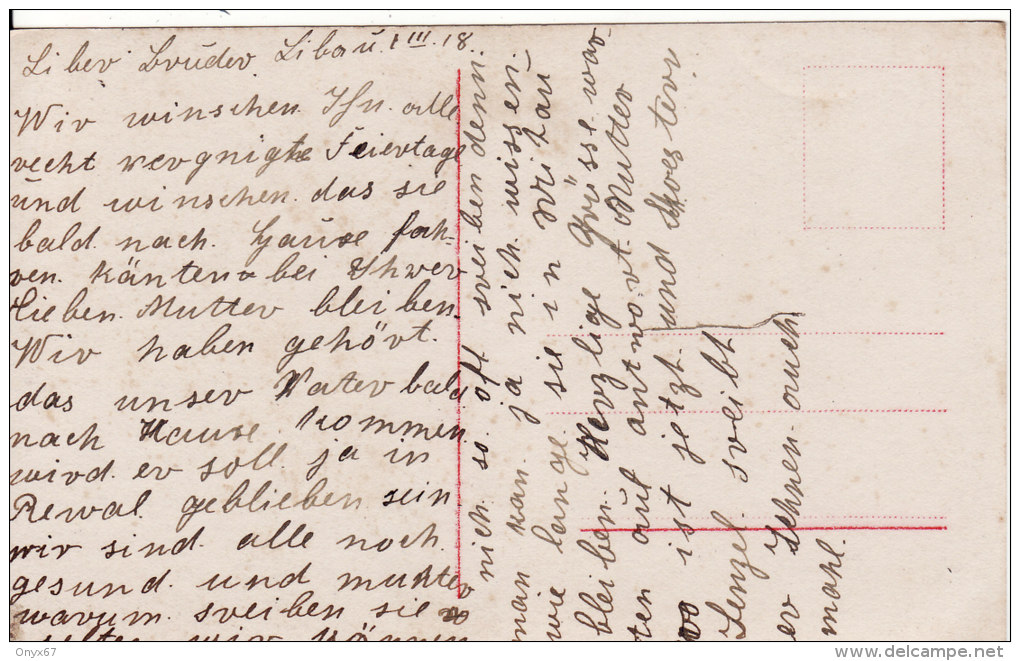 Liber Bruder Libau 1 III. 18.
Wir winschen Ihn alle
recht vergnigte Feiertage
und winschen das sie
bald nach Hause fah-
ren känten bei Ihrer
lieben Mutter bleiben.
Wir haben gehört.
das unser Vater bald
nach Hause kommen
wird er soll ja in
Rewal geblieben sein.
wir sind alle noch
gesund und munter
warum sreiben sie
selten wir können
nich so oft sreiben denn
man kan ja nich wissen
wie lange sie in Witau
bleiben Herzlige Grüsse war-
ten auf antwort Mutter
wo ist jetzt und Swester
Lenzel sreibt
er Ihnen auch
mahl.
Onyx67
http://www.delcampe.net